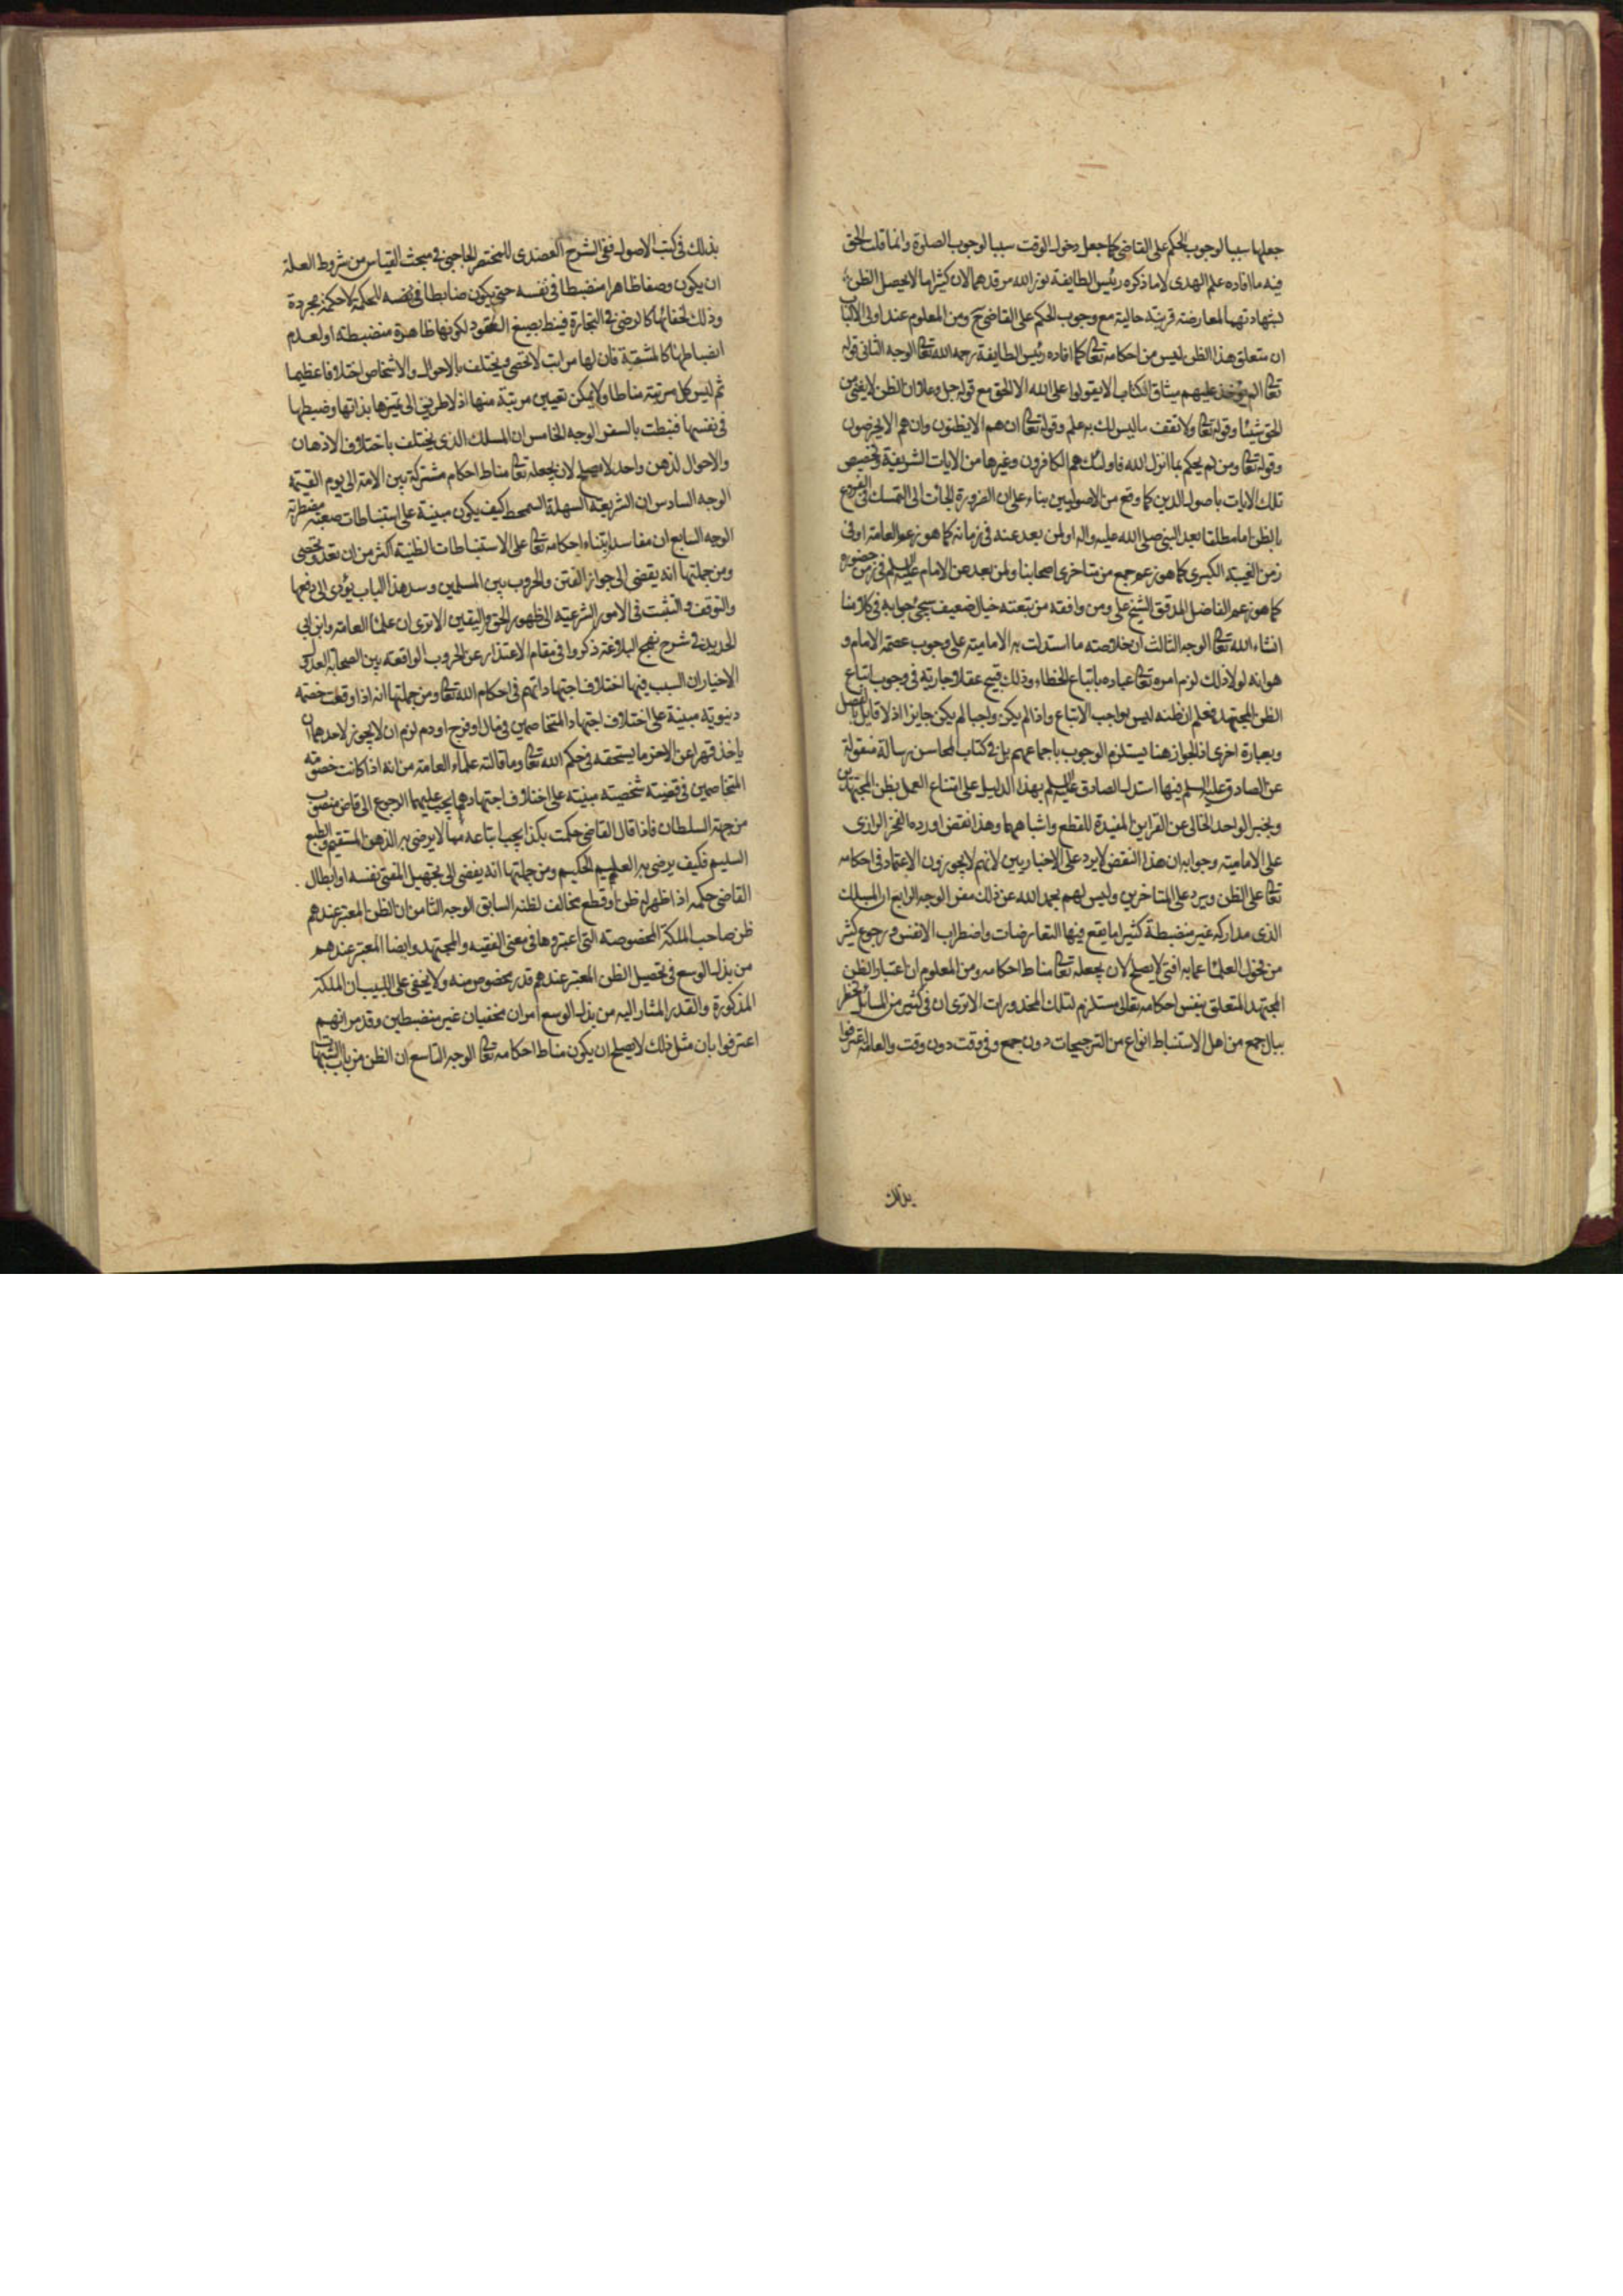 جعلها سببا لوجوب الحكم على القاضى كما جعل دخول الوقت سببا لوجوب الصلوة وانما قلت الحق
فيه ما افاده علم الهدى لا ما ذكره رئيس الطايفة نور الله مرقدهما لان كثيرا ما لا يحصل الظن
بشهادتهما لمعارضة قرينة حالية مع وجوب الحكم على القاضى ح ومن المعلوم عند اولى الالباب
ان متعلق هذا الظن ليس من احكامه تعالى كما افاده رئيس الطايفة رحمه الله تعالى الوجه الثانى قوله
تعالى الم يؤخذ عليهم ميثاق الكتاب الا يقولوا على الله الا الحق مع قوله جل وعلا ان الظن لا يغنى من
الحق شيئا وقوله تعالى ولا تقف ما ليس لك به علم وقوله تعالى ان هم الا يظنون وان هم الا يخرصون
وقوله تعالى ومن لم يحكم بما انزل الله فاولئك هم الكافرون وغيرها من الايات الشريفة وتخصيص
تلك الايات باصول الدين كما وقع من الاصوليين بناء على ان الضرورة الجات الى التمسك فى الفروع
بالظن اما مطلقا بعد النبى صلى الله عليه واله او لمن بعد عنه فى زمانه كما هو زعم العامة او فى
زمن الغيبة الكبرى كما هو زعم جمع من متاخرى اصحابنا ولمن بعد عن الامام عليه السلم فى زمن حضوره
كما هو زعم الفاضل المدقق الشيخ على ومن وافقه من تبعته خيال ضعيف سيجئ جوابه فى كلامنا
انشاء الله تعالى الوجه الثالث ان خلاصة ما استدلت به الامامية على وجوب عصمة الامام و
هو انه لولا ذلك لزم امره تعالى عباده باتباع الخطاء وذلك قبيح عقلا جارية فى وجوب اتباع
الظن المجتهد فعلم ان ظنه ليس بواجب الاتباع واذا لم يكن واجبا لم يكن جايزا اذ لا قايل بالفصل
وبعبارة اخرى اذ الجواز هنا يستلزم الوجوب باجماعهم بل فى كتاب المحاسن رسالة منقولة
عن الصادق عليه السلم فيها استدل الصادق عليه السلم بهذا الدليل على امتناع العمل بظن المجتهدين
وبخبر الواحد الخالى عن القراين المفيدة للقطع واشباههما وهذا نقض اورده الفخر الرازى
على الامامية وجوابه ان هذا النقض لا يرد على الاخباريين لانهم لا يجوزون الاعتماد فى احكامه
تعالى على الظن ويرد على المتاخرين وليس لهم بحمد الله عن ذلك مفر الوجه الرابع ان المسلك
الذى مداركه غير منضبطة كثيرا ما يقع فيها التعارضات واضطراب الانفس ورجوع كثير
من فحول العلما عما به افتى لا يصلح لان يجعله تعالى مناط احكامه ومن المعلوم ان اعتبار الظن
المجتهد المتعلق بنفس احكامه تعالى مستلزم لتلك المحذورات الا ترى ان فى كثير من المسائل يخطر
ببال جمع من اهل الاستنباط انواع من الترجيحات دون جمع وفى وقت دون وقت والعامة اعترفوا
بذلك
بذلك فى كتب الاصول ففى الشرح العضدى للمختصر الحاجبى فى مبحث القياس من شروط العلة
ان يكون وصفا ظاهرا منضبطا فى نفسه حتى يكون ضابطا فى نفسه للحكمة لا حكمة مجردة
وذلك لخفائها كالرضى فى التجارة فينط بصيغ العقود لكونها ظاهرة منضبطة او لعدم
انضباطها كالمشقة فان لها مراتب لا تحصى ويختلف بالاحوال والاشخاص اختلافا عظيما
ثم ليس كل مرتبة مناطا ولا يمكن تعيين مرتبة منها اذ لا طريق الى تميزها بذاتها وضبطها
فى نفسها فنيطت بالسفر الوجه الخامس ان المسلك الذى يختلف باختلاف الاذهان
والاحوال لذهن واحد لا يصلح لان يجعله تعالى مناط احكام مشتركة بين الامة الى يوم القيمة
الوجه السادس ان الشريعة السهلة السمحة كيف يكون مبنية على استنباطات صعبة مضطربة
الوجه السابع ان مفاسد ابتناء احكامه تعالى على الاستنباطات الظنية اكثر من ان تعد وتحصى
ومن جملتها انه يقضى الى جواز الفتن والحروب بين المسلمين وسد هذا الباب يؤدى الى دفعها
والتوقف والتثبت فى الامور الشرعية الى ظهور الحق واليقين الا ترى ان علما العامة وابن ابى
الحديد فى شرح نهج البلاغة ذكروا فى مقام الاعتذار عن الحروب الواقعة بين الصحابة العدول
الاخيار ان السبب فيها اختلاف اجتهاداتهم فى احكام الله تعالى ومن جملتها انه اذا وقعت خصمة
دنيوية مبنية على اختلاف اجتهاد المتخاصمين فى مال او فرج او دم لزم ان لا يجوز لاحدهما ان
ياخذ قهرا عن الاخر ما يستحقه فى حكم الله تعالى وما قالته علماء العامة من انه اذا كانت خصومة
المتخاصمين فى قضية شخصية مبنية على اختلاف اجتهادهما يجب عليهما الرجوع الى قاض منصوب
من جهة السلطان فاذا قال القاضى حكمت بكذا يجب اتباعه مما لا يرضى به الذهن المستقيم والطبع
السليم فكيف يرضى به العليم الحكيم ومن جملتها انه يفضى الى تجهيل المفتى نفسه او ابطال
القاضى حكمه اذا ظهر له ظن او قطع مخالف لظنه السابق الوجه الثامن ان الظن المعتبر عندهم
ظن صاحب الملكة المخصوصة التى اعتبروها فى معنى الفقيه والمجتهد وايضا المعتبر عندهم
من بذل الوسع فى تحصيل الظن المعتبر عندهم قدر مخصوص منه ولا يخفى على اللبيب ان الملكة
المذكورة والقدر المشار اليه من بذل الوسع امران مخفيان غير منضبطين وقد مر انهم
اعترفوا بان مثل ذلك لا يصلح ان يكون مناط احكامه تعالى الوجه التاسع ان الظن من باب الشبهات